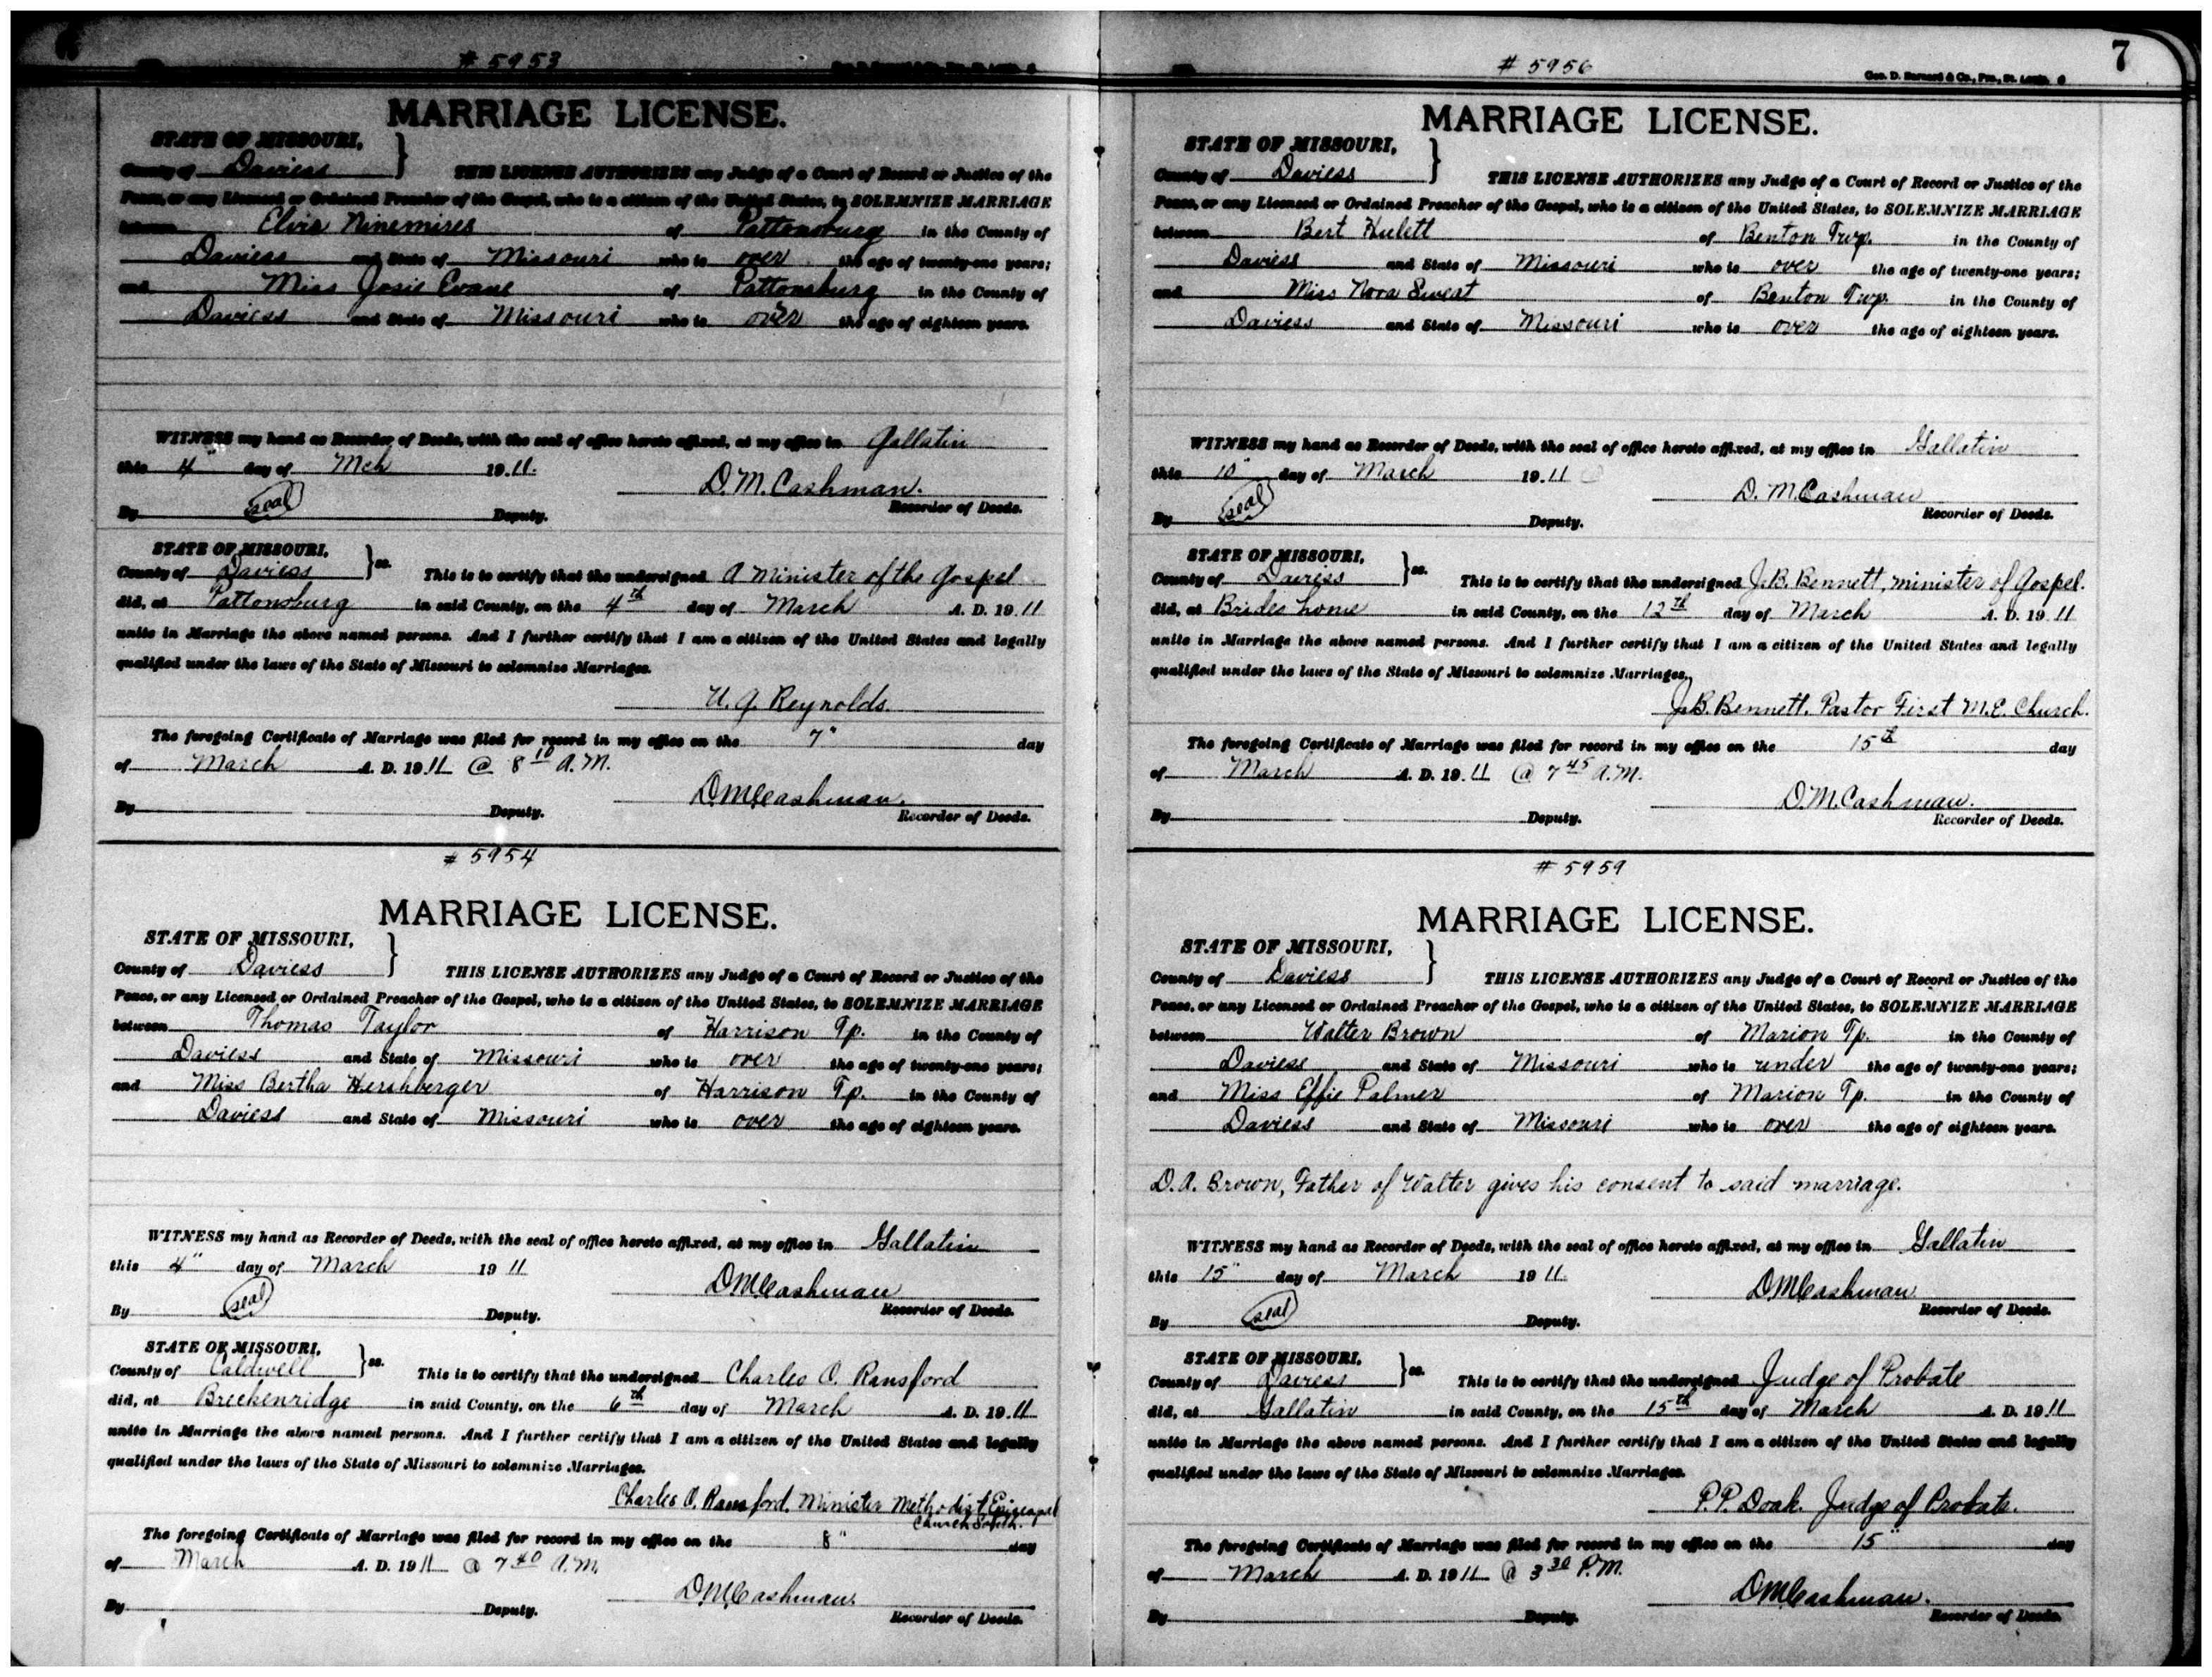 # 5953
MARRIAGE LICENSE.
STATE OF MISSOURI,
County of Daviess } THIS LICENSE AUTHORIZES any Judge of a Court of Record or Justice of the
Peace, or any Licensed or Ordained Preacher of the Gospel, who is a citizen of the United States, to SOLEMNIZE MARRIAGE
between Elvis Ninemires of Pattonsburg in the County of
Daviess and State of Missouri who is over the age of twenty-one years;
and Miss Josie Evans of Pattonsburg in the County of
Daviess and State of Missouri who is over the age of eighteen years.
WITNESS my hand as Recorder of Deeds, with the seal of office hereto affixed, at my office in Gallatin
this 4 day of Mch 1911.
D. M. Cashman.
By (seal) Deputy. Recorder of Deeds.
STATE OF MISSOURI,
County of Daviess } ss. This is to certify that the undersigned A Minister of the Gospel
did, at Pattonsburg in said County, on the 4th day of March A. D. 1911
unite in Marriage the above named persons. And I further certify that I am a citizen of the United States and legally
qualified under the laws of the State of Missouri to solemnize Marriages.
U. G. Reynolds.
The foregoing Certificate of Marriage was filed for record in my office on the 7" day
of March A. D. 1911 @ 8 10 A.M.
D. M. Cashman.
By Deputy. Recorder of Deeds.
# 5954
MARRIAGE LICENSE.
STATE OF MISSOURI,
County of Daviess } THIS LICENSE AUTHORIZES any Judge of a Court of Record or Justice of the
Peace, or any Licensed or Ordained Preacher of the Gospel, who is a citizen of the United States, to SOLEMNIZE MARRIAGE
between Thomas Taylor of Harrison Tp. in the County of
Daviess and State of Missouri who is over the age of twenty-one years;
and Miss Bertha Hershberger of Harrison Tp. in the County of
Daviess and State of Missouri who is over the age of eighteen years.
WITNESS my hand as Recorder of Deeds, with the seal of office hereto affixed, at my office in Gallatin
this 4" day of March 1911
D. M. Cashman
By (seal) Deputy. Recorder of Deeds.
STATE OF MISSOURI,
County of Caldwell } ss. This is to certify that the undersigned Charles O. Ransford
did, at Breckenridge in said County, on the 6th day of March A. D. 1911
unite in Marriage the above named persons. And I further certify that I am a citizen of the United States and legally
qualified under the laws of the State of Missouri to solemnize Marriages.
Charles O. Ransford, Minister Methodist Episcopal
Church South.
The foregoing Certificate of Marriage was filed for record in my office on the 8" day
of March A. D. 1911 @ 7 40 A.M.
D. M. Cashman.
By Deputy. Recorder of Deeds.
7
# 5956
Geo. D. Barnard & Co., Pro., St. Louis.
MARRIAGE LICENSE.
STATE OF MISSOURI,
County of Daviess } THIS LICENSE AUTHORIZES any Judge of a Court of Record or Justice of the
Peace, or any Licensed or Ordained Preacher of the Gospel, who is a citizen of the United States, to SOLEMNIZE MARRIAGE
between Bert Hulett of Benton Twp. in the County of
Daviess and State of Missouri who is over the age of twenty-one years;
and Miss Nora Sweat of Benton Twp. in the County of
Daviess and State of Missouri who is over the age of eighteen years.
WITNESS my hand as Recorder of Deeds, with the seal of office hereto affixed, at my office in Gallatin
this 10" day of March 1911
D. M. Cashman
By (seal) Deputy. Recorder of Deeds.
STATE OF MISSOURI,
County of Daviess } ss. This is to certify that the undersigned J. B. Bennett, minister of Gospel.
did, at Brides home in said County, on the 12th day of March A. D. 1911
unite in Marriage the above named persons. And I further certify that I am a citizen of the United States and legally
qualified under the laws of the State of Missouri to solemnize Marriages.
J. B. Bennett. Pastor First M.E. Church.
The foregoing Certificate of Marriage was filed for record in my office on the 15th day
of March A. D. 1911 @ 7 45 A.M.
D. M. Cashman.
By Deputy. Recorder of Deeds.
# 5959
MARRIAGE LICENSE.
STATE OF MISSOURI,
County of Daviess } THIS LICENSE AUTHORIZES any Judge of a Court of Record or Justice of the
Peace, or any Licensed or Ordained Preacher of the Gospel, who is a citizen of the United States, to SOLEMNIZE MARRIAGE
between Walter Brown of Marion Tp. in the County of
Daviess and State of Missouri who is under the age of twenty-one years;
and Miss Effie Palmer of Marion Tp. in the County of
Daviess and State of Missouri who is over the age of eighteen years.
D. A. Brown, Father of Walter gives his consent to said marriage.
WITNESS my hand as Recorder of Deeds, with the seal of office hereto affixed, at my office in Gallatin
this 15" day of March 1911.
D. M. Cashman
By (seal) Deputy. Recorder of Deeds.
STATE OF MISSOURI,
County of Daviess } ss. This is to certify that the undersigned Judge of Probate
did, at Gallatin in said County, on the 15th day of March A. D. 1911
unite in Marriage the above named persons. And I further certify that I am a citizen of the United States and legally
qualified under the laws of the State of Missouri to solemnize Marriages.
P. P. Doak. Judge of Probate.
The foregoing Certificate of Marriage was filed for record in my office on the 15" day
of March A. D. 1911 @ 3 30 P.M.
D. M. Cashman.
By Deputy. Recorder of Deeds.